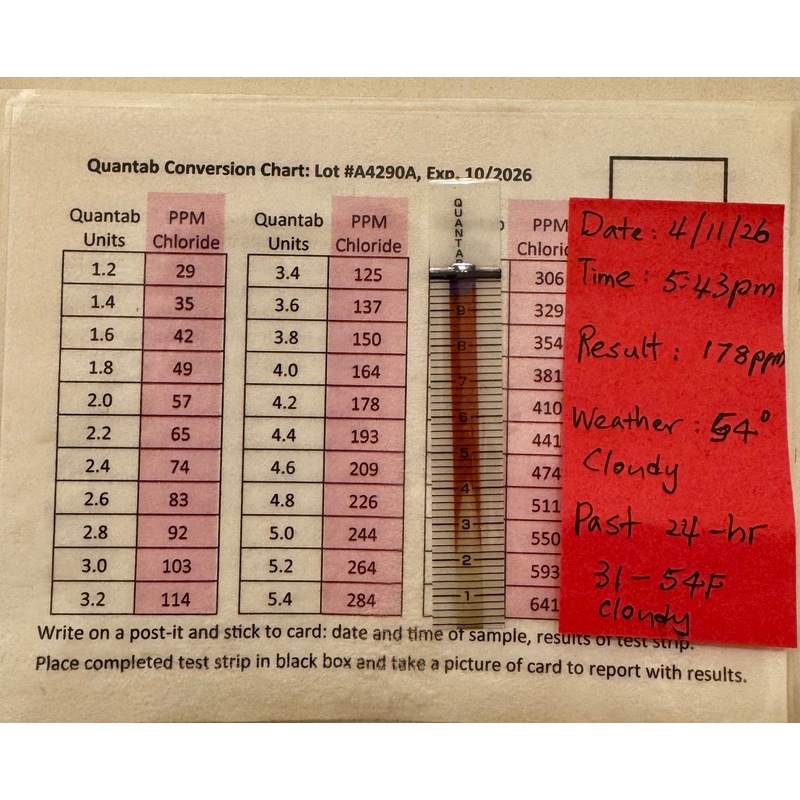 Quantab Conversion Chart: Lot #A4290A, Exp. 10/2026
Quantab Units PPM Chloride
1.2 29
1.4 35
1.6 42
1.8 49
2.0 57
2.2 65
2.4 74
2.6 83
2.8 92
3.0 103
3.2 114
Quantab Units PPM Chloride
3.4 125
3.6 137
3.8 150
4.0 164
4.2 178
4.4 193
4.6 209
4.8 226
5.0 244
5.2 264
5.4 284
QUANTA
9
8
7
6
5
4
3
2
1
PPM
306
329
354
381
410
441
474
511
550
593
641
Date: 4/11/26
Time: 5:43pm
Result: 178ppm
Weather: 54°
Cloudy
Past 24-hr
31-54F
cloudy
Write on a post-it and stick to card: date and time of sample, results of test strip.
Place completed test strip in black box and take a picture of card to report with results.